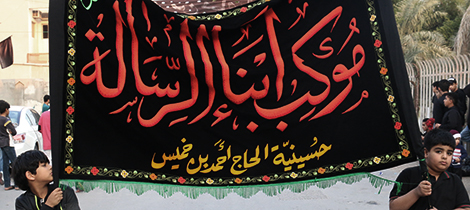 مَوكب أبناء الرِّسالة
حسينيّة الحاج أحمد بن خميس